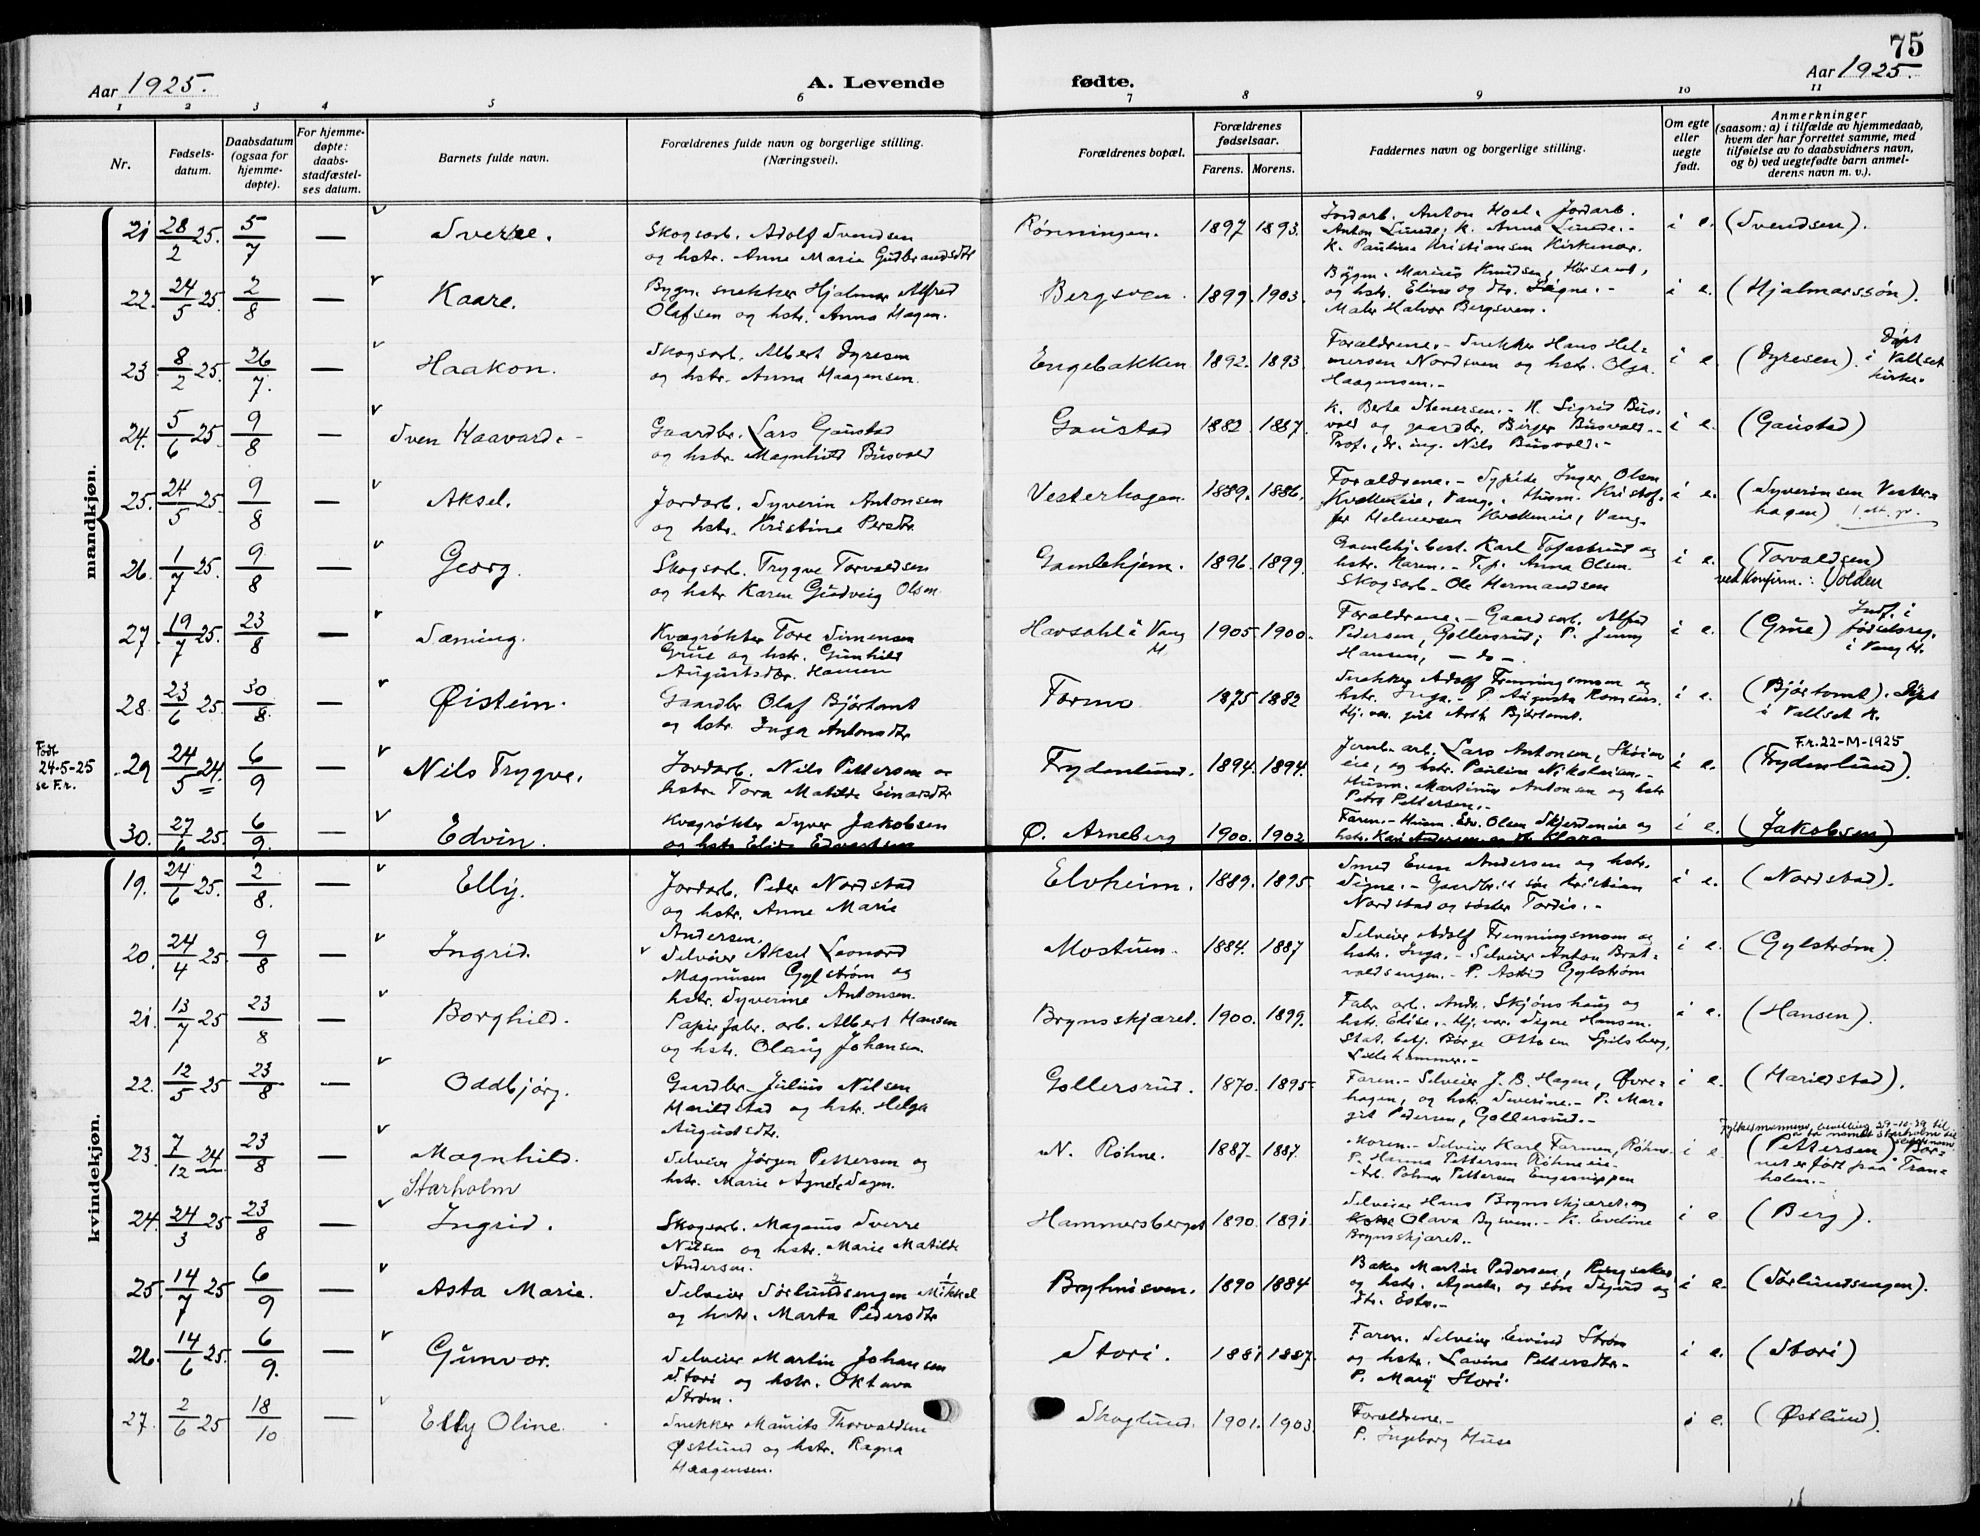 75
Aar 1925. A. Levende fødte. Aar 1925.
1 2 3 4 5 6 7 8 9 10 11
Nr. Fødselsdatum. Daabsdatum (ogsaa for hjemmedøpte). For hjemmedøpte: daabsstadfæstelses datum. Barnets fulde navn. Forældrenes fulde navn og borgerlige stilling. (Næringsvei). Forældrenes bopæl. Forældrenes fødselsaar. Farens. Morens. Faddernes navn og borgerlige stilling. Om egte eller uegte født. Anmerkninger (saasom: a) i tilfælde av hjemmedaab, hvem der har forrettet samme, med tilføielse av to daabsvidners navn, og b) ved uegtefødte barn anmelderens navn m. v.).
mandkjøn.
21 28/2 25. 5/7 — Sverre. Skogsarb. Adolf Svendsen og hstr. Anne Marie Gudbrandsdtr Rønningen. 1897 1893. Jordarb. Anton Hoel. Jordarb. Anton Lunde; K. Anna Lunde.- K. Pauline Kristiansen Kirkenær. i e. (Svendsen).
22. 24/5 25. 2/8 — Kaare. Bygn. snekker Hjalmar Alfred Olafsen og hstr. Anna Hagen. Bergsven. 1899. 1903. Bygm. Marius Knudsen, Hørsand, og hstr. Eline og dtr. Signe.- Maler Halvor Bergsven. i e. (Hjalmarssøn).
23. 8/2 25. 26/7. — Haakon. Skogsarb. Albert Dyresen og hstr. Anna Haagensen. Engebakken 1892. 1893. Forældrene.- Snekker Hans Helmersen Nordsven og hstr. Olga Haagensen.- i e. (Dyresen). Døpt i Vallset kirke.
24. 5/6 25. 9/8 — Sven Haavard.- Gaardbr. Lars Gaustad og hstr. Magnhild Busvold Gaustad 1882. 1887. K. Berte Stenersen.- K. Sigrid Busvold og gaardbr. Birger Busvold.- Prof., dr. ing. Nils Busvold.- i e. (Gaustad)
25. 24/5 25. 9/8 — Aksel. Jordarb. Syverin Antonsen og hstr. Kristine Persdtr Vesterhagen. 1889. 1886. Forældrene.- Sypike Inger Olsen Kvekeneie, Vang. Husm. Kristoffer Helmersen Kvekeneie, Vang. i e. (Syverinsen Vesterhagen)
26. 1/7 25. 9/8 — Georg. Skogsarb. Trygve Torvaldsen og hstr Karen Gudveig Olsen. Gamlehjem. 1896. 1899. Gamlehj. best. Karl Tofastrud og hstr. Karen.- T.p. Anna Olsen. Skogsarb. Ole Hermandsen i e. (Torvaldsen) ved konfirm.: Volden
27. 19/7 25. 23/8 — Sæming. Kvægrøkter Tore Simensen Grue og hstr. Gunhild Augustsdtr. Hansen Havsahl i Vang H. 1905. 1900. Forældrene.- Gaardsarb. Alfred Pedersen, Gollersrud; P. Jenny Hansen, - do -. i e. (Grue) Indf. i fødselsreg. i Vang H.
28. 23/6 25. 30/8. — Øistein. Gaardbr Olaf Bjørtomt og hstr. Inga Antonsdtr Formo 1875 1882 Snekker Adolf Frenningsmoen og hstr. Inga.- P Augusta Romsaas. Hj. vær. gut Arth Bjørtomt. i e. (Bjørtomt). Døpt i Vallset K.
Født 24-5-25 se F.r.
29 24/5 24. 6/9 — Nils Trygve. Jordarb. Nils Pettersen og hstr. Tora Matilde Einarsdtr Frydenlund. 1894. 1894. Jernb. arb. Lars Antonsen, Skøieneie, og hstr. Pauline Nikolaisen.- Husm. Martinus Antonsen og hstr Petra Pettersen.- i e. F.r. 22-M-1925 (Frydenlund).
30. 27/6 25. 6/9. — Edvin. Kvægrøkter Syver Jakobsen og hstr Elida Edvardsen Ø. Arneberg 1900. 1902 Faren.- Husm. Edv. Olsen Skjerdeneie og hstr. Kari Andersen og dtr. Klara i e. (Jakobsen)
kvindekjøn.
19. 24/6 25. 2/8. — Elly. Jordarb. Peder Nordstad og hstr. Anne Marie Andersen. Elvheim. 1889. 1895. Smed Even Andersen og hstr. Signe.- Gaardbr.s søn Kristian Nordstad og søster Tordis.- i e. (Nordstad).
20. 24/4 25. 9/8 — Ingrid. Selveier Aksel Leonard Magnusen Gylstrøm og hstr. Syverine Antonsen. Mostuen. 1884. 1887 Selveier Adolf Frenningsmoen og hstr. Inga.- Selveier Anton Bratvoldsengen.- P. Astrid Gylstrøm i e. (Gylstrøm)
21. 13/7 25 23/8 — Borghild. Papirfabr. arb. Albert Hansen og hstr. Olaug Johansen. Brynsskjæret. 1900. 1899. Fabr. arb. Andr. Skjønshaug og hstr. Elise.- Hj. vær. Signe Hansen. Stat. betj. Børge Ottosen Spilsberg, Lillehammer.- i e. (Hansen).
22. 12/5 25 23/8 — Oddbjørg. Gaardbr. Julius Nilsen Harildstad og hstr. Helga Augustsdtr. Gollersrud. 1870. 1895- Faren.- Selveier J. B. Hagen, Øvrehagen, og hstr. Severine.- P. Margit Pedersen, Gollersrud.- i e. (Harildstad).
23. 7/12 24 23/8 — Magnhild. Starholm Selveier Jørgen Pettersen og hstr. Marie Agnete Dagen. N. Røhne. 1887- 1887. Moren.- Selveier Karl Farmen, Røhne. P. Hanna Pettersen Røhneeie.- Arb. Palmer Pettersen Engesnippen i e. Fylkesmannens bevilling 29-10-39 til å ta navnet Starholm til slektsnavn (Pettersen) Barnet er ført fraa Tranholen.-
24. 24/3 25 23/8 — Ingrid. Skogsarb. Magnus Sverre Nilsen og hstr. Marie Matilde Andersen. Hammersberget 1890. 1891. Selveier Hans Brynsskjæret og Olava Bysven.- K. Eveline Brynsskjæret.- i e (Berg).
25. 14/7 25 6/9 — Asta Marie. Selveier Sørlundsengen Mikkel og hstr. Marta Pedersdtr Bryhnisven. 1890 1884 Baker Martin Pedersen, Ringsaker, og hstr. Agnete, og søn Sigurd og dtr. Ester.- i e. (Sørlundsengen).
26. 14/6 25. 6/9. — Gunvor. Selveier Martin Johansen Stori og hstr. Oktava Strøm. Stori. 1881 1887. Faren. Selveier Eivind Strøm og hstr. Lavina Pettersdtr.- P. Mary Stori. i e. (Stori)
27. 2/6 25 18/10 — Elly Oline. Snekker Maurits Thorvaldsen Østlund og hstr. Ragna Haagensen. Skoglund. 1901. 1903. Forældrene.- P. Ingeborg Huse i e. (Østlund).